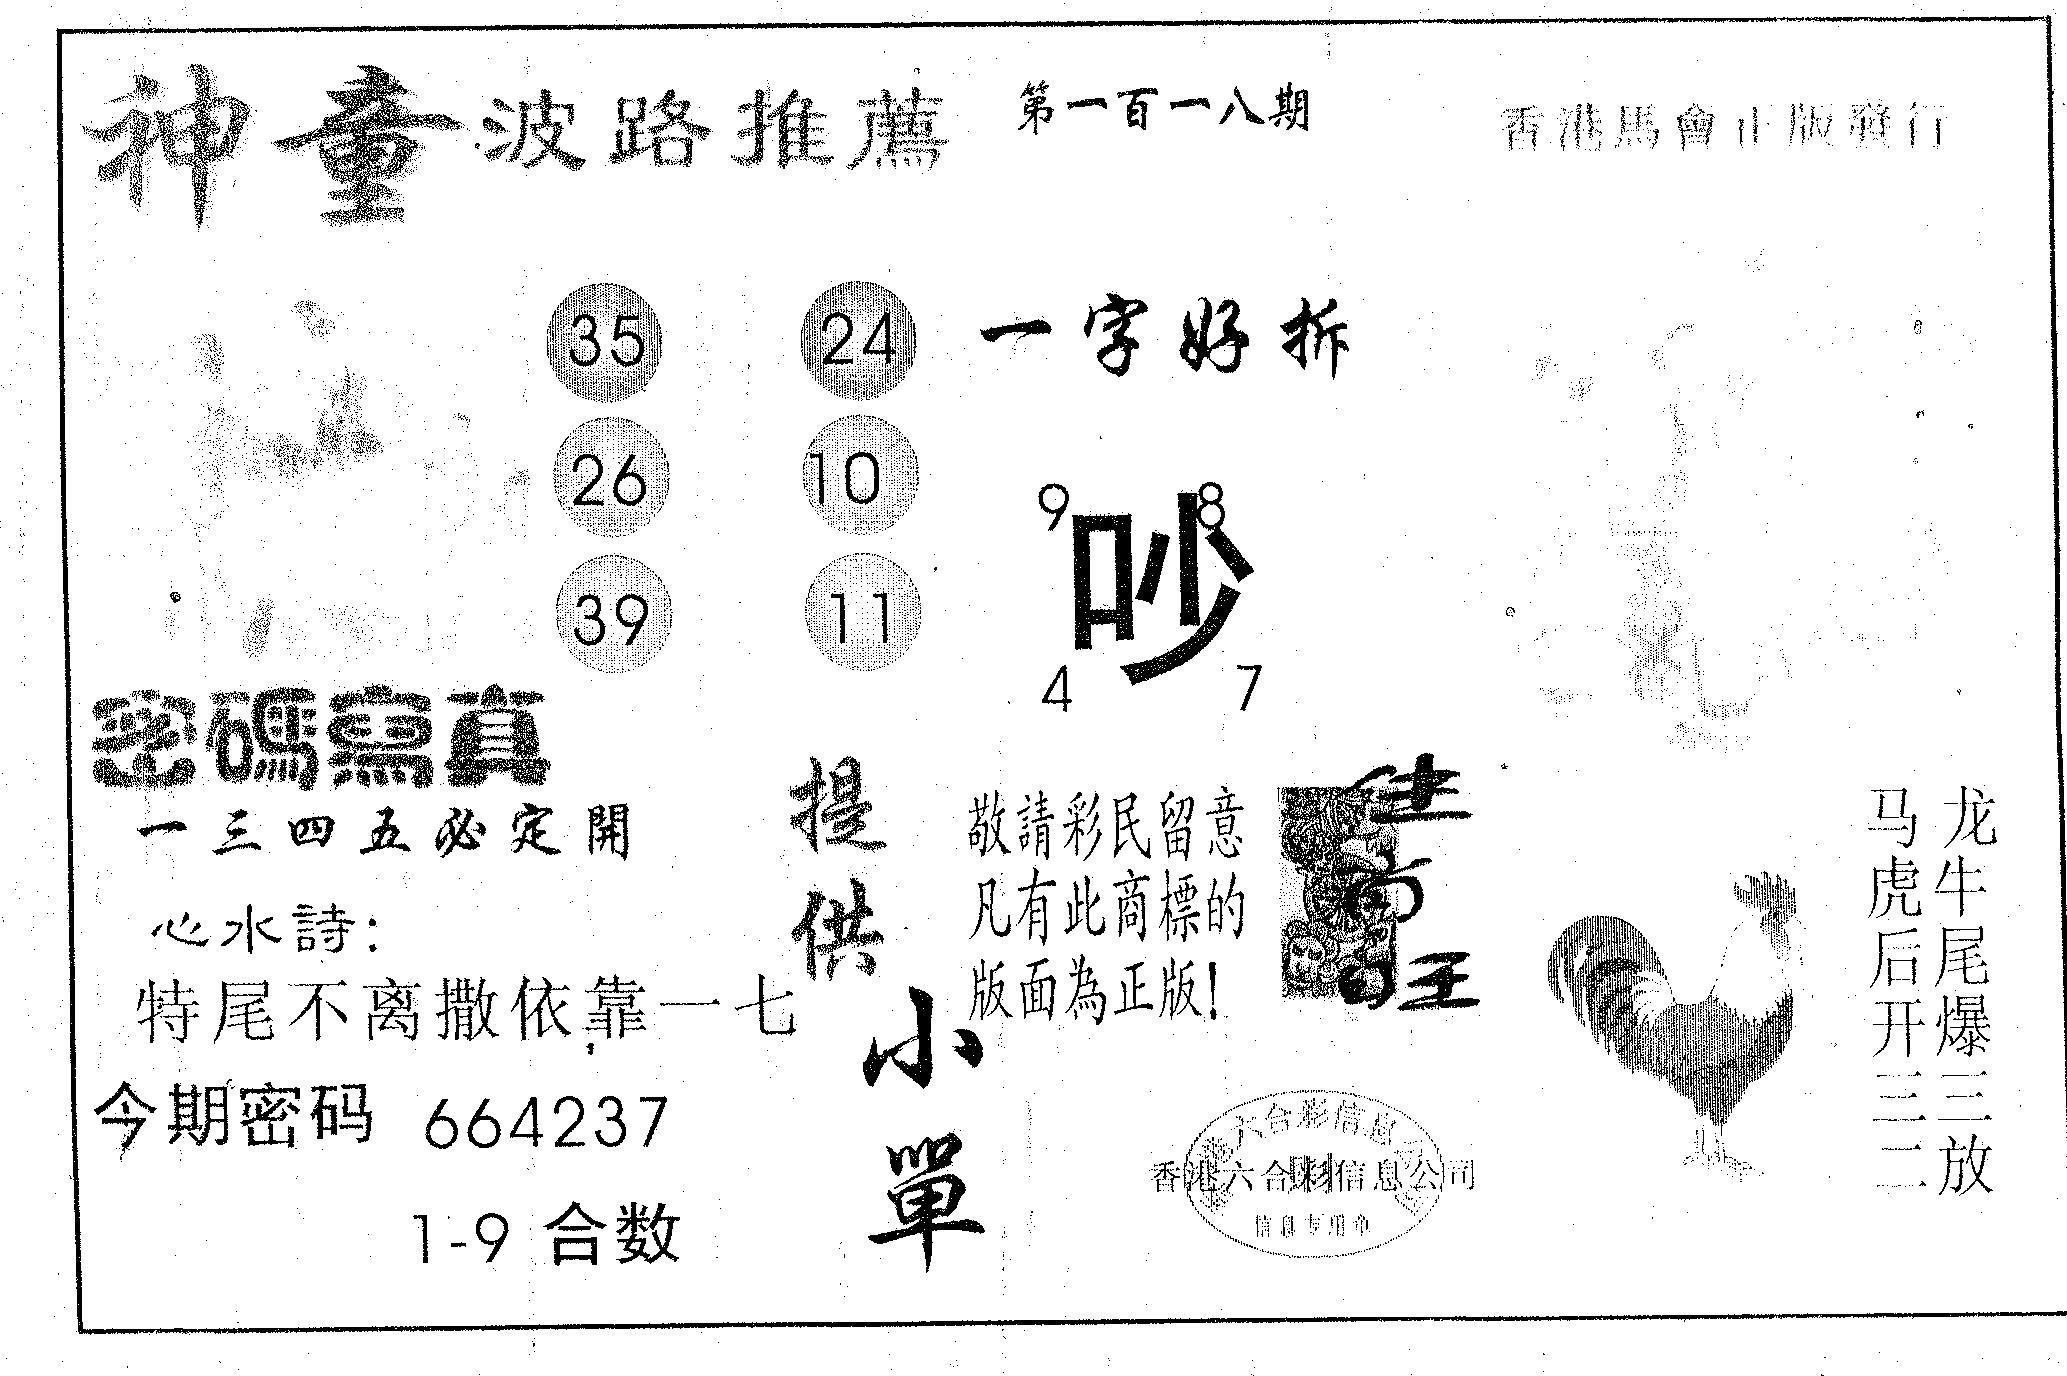 神童波路推薦
第一百一八期
香港馬會正版發行
35 24
26 10
39 11
一字好拆
9 8
吵
4 7
密碼寫真
一三四五必定開
心水詩：
特尾不离撒依靠一七
今期密码 664237
1-9 合数
提供
小單
敬請彩民留意
凡有此商標的
版面為正版！
龙牛尾爆三放
马虎后开三二
六合彩信息
香港六合彩信息公司